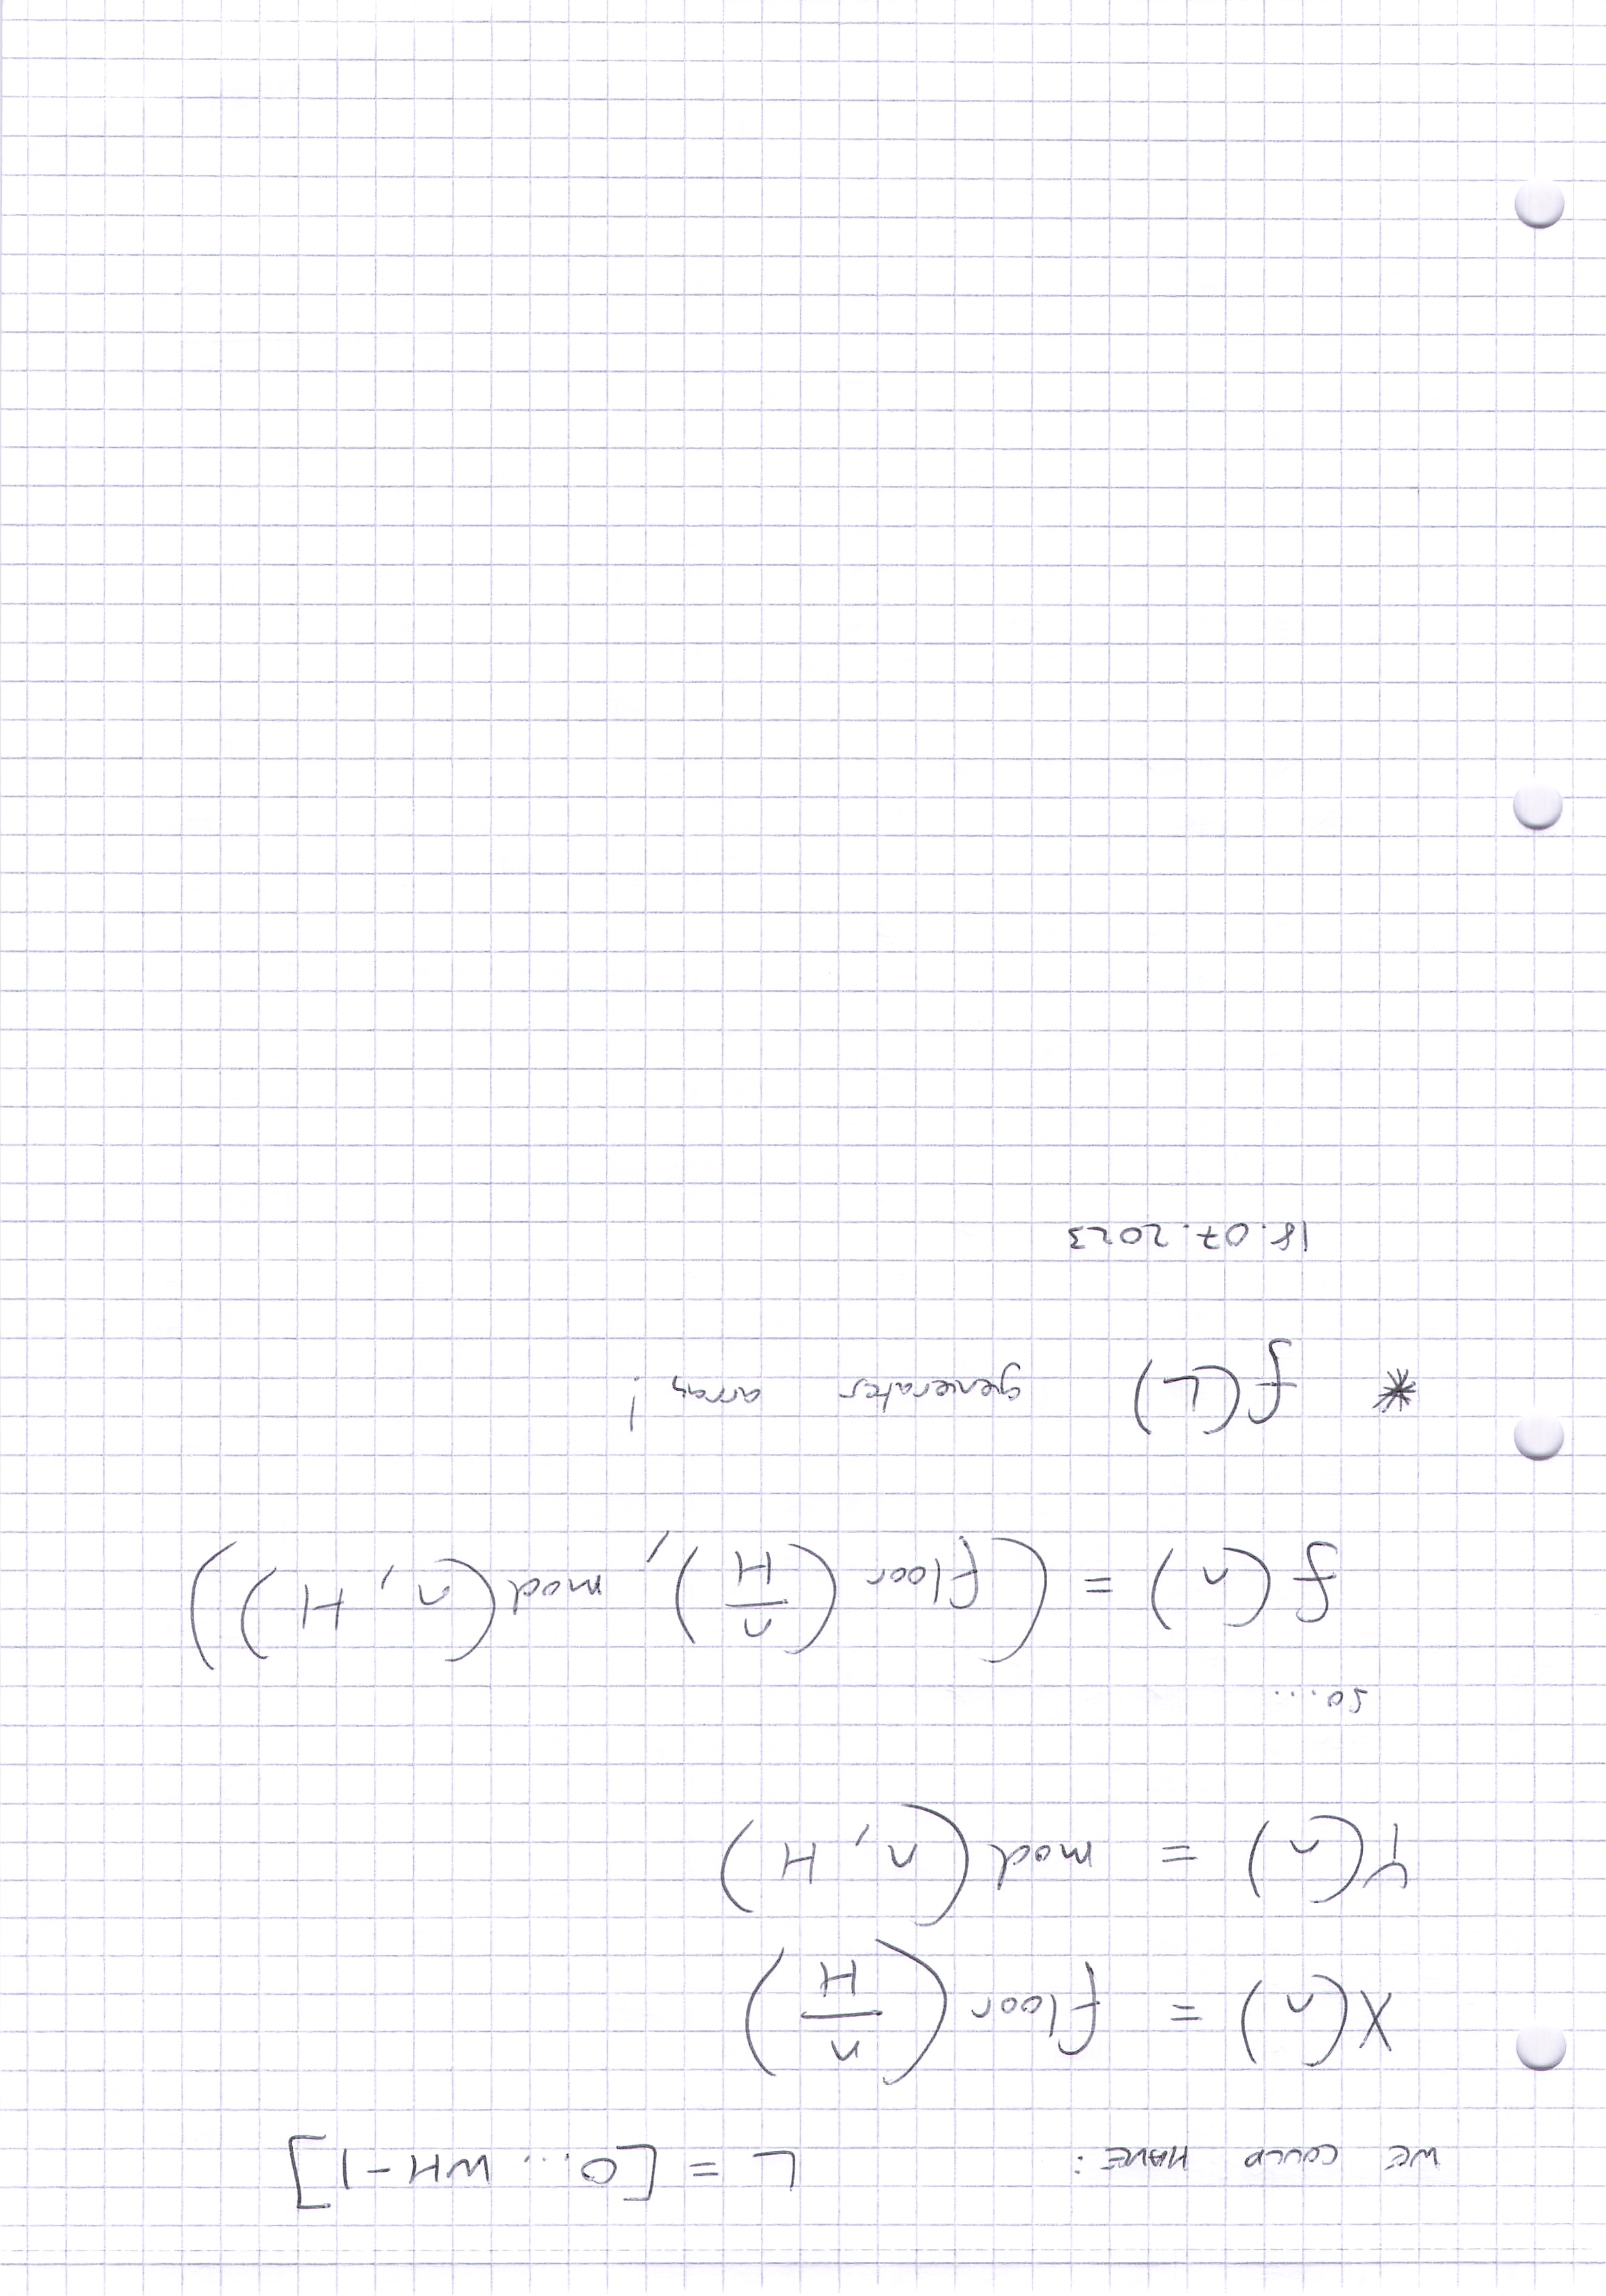 WE COULD HAVE: L = [0... WH-1]
X(n) = floor(n/H)
Y(n) = mod(n, H)
so...
f(n) = (floor(n/H), mod(n, H))
* f(L) generates array!
18.07.2023